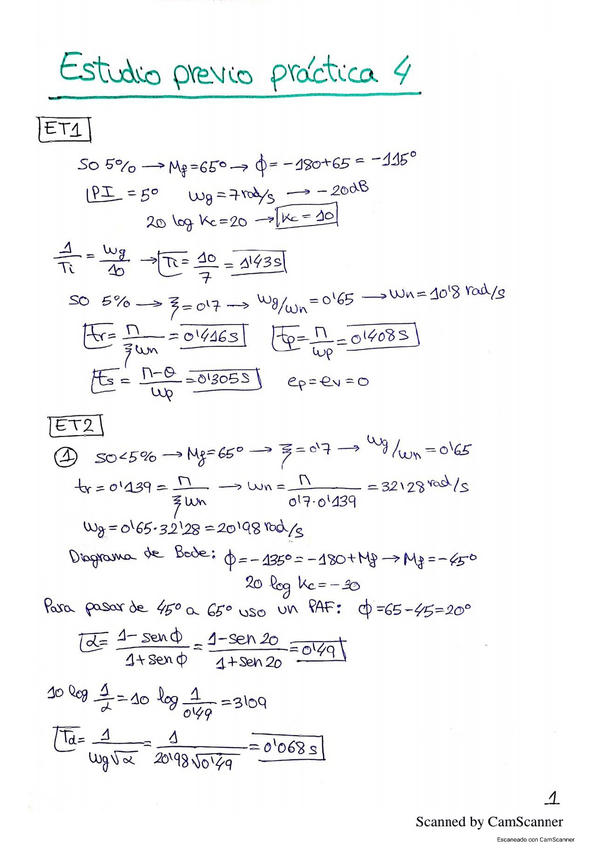 Estudio previo práctica 4
ET1
SO 5% → Mf=65° → ϕ = -180+65 = -115°
PI = 5° wg=7rad/s → -20dB
20 log Kc=20 → Kc = 10
1/Ti = wg/10 → Ti = 10/7 = 1'43s
SO 5% → ξ=0'7 → wg/wn=0'65 → wn=10'8 rad/s
tr = π/ξwn = 0'416s tp = π/wp = 0'408s
ts = π-θ/wp = 0'305s ep=ev=0
ET2
1 SO<5% → Mf=65° → ξ=0'7 → wg/wn=0'65
tr=0'139 = π/ξwn → wn = π/0'7·0'139 = 32'28 rad/s
wg=0'65·32'28=20'98 rad/s
Diagrama de Bode: ϕ=-135°=-180+Mf → Mf=-45°
20 log Kc=-30
Para pasar de 45° a 65° uso un PAF: ϕ=65-45=20°
α = 1-senϕ/1+senϕ = 1-sen20/1+sen20 = 0'49
10 log 1/α = 10 log 1/0'49 = 3'09
Td = 1/wg√α = 1/20'98√0'49 = 0'068s
1
Scanned by CamScanner
Escaneado con CamScanner